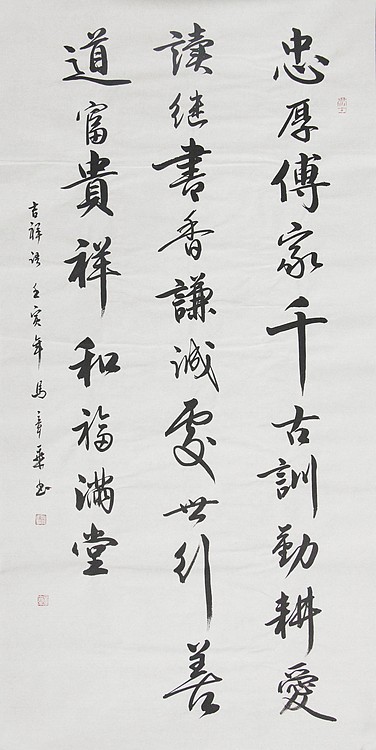 忠厚傅家千古訓勤耕愛
讀继書香謙誠處世行善
道富貴祥和福滿堂
吉祥语壬寅年馬章乘书